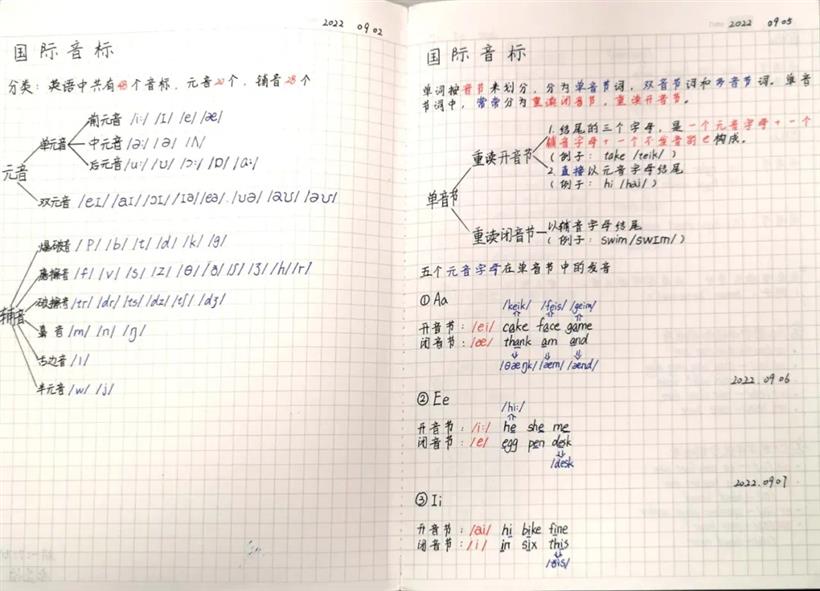 2022 09 02
国际音标
分类：英语中共有48个音标，元音20个，辅音28个
元音
单元音
前元音 /i:/ /I/ /e/ /æ/
中元音 /ɜ:/ /ə/ /ʌ/
后元音 /u:/ /ʊ/ /ɔ:/ /ɒ/ /ɑ:/
双元音 /eɪ/ /aɪ/ /ɔɪ/ /ɪə/ /eə/ /ʊə/ /aʊ/ /əʊ/
辅音
爆破音 /p/ /b/ /t/ /d/ /k/ /g/
摩擦音 /f/ /v/ /s/ /z/ /θ/ /ð/ /ʃ/ /ʒ/ /h/ /r/
破擦音 /tr/ /dr/ /ts/ /dz/ /tʃ/ /dʒ/
鼻音 /m/ /n/ /ŋ/
舌边音 /l/
半元音 /w/ /j/
Date 2022 09 05
国际音标
单词按音节来划分，分为单音节词，双音节词和多音节词。单音
节词中，常常分为重读闭音节，重读开音节。
单音节
重读开音节
1.结尾的三个字母，是一个元音字母+一个
辅音字母+一个不发音的e构成。
（例子：take /teik/）
2.直接以元音字母结尾
（例子：hi /hai/）
重读闭音节
以辅音字母结尾
（例子：swim/swɪm/）
五个元音字母在单音节中的发音
①Aa
/keik/ /feis/ /geim/
开音节：/ei/ cake face game
闭音节：/æ/ thank am and
/θæŋk/ /æm/ /ænd/
2022.09 06
②Ee
/hi:/
开音节：/i:/ he she me
闭音节：/e/ egg pen desk
/desk
2022.09 07
③Ii
开音节：/ai/ hi bike fine
闭音节：/i/ in six this
/ðis/